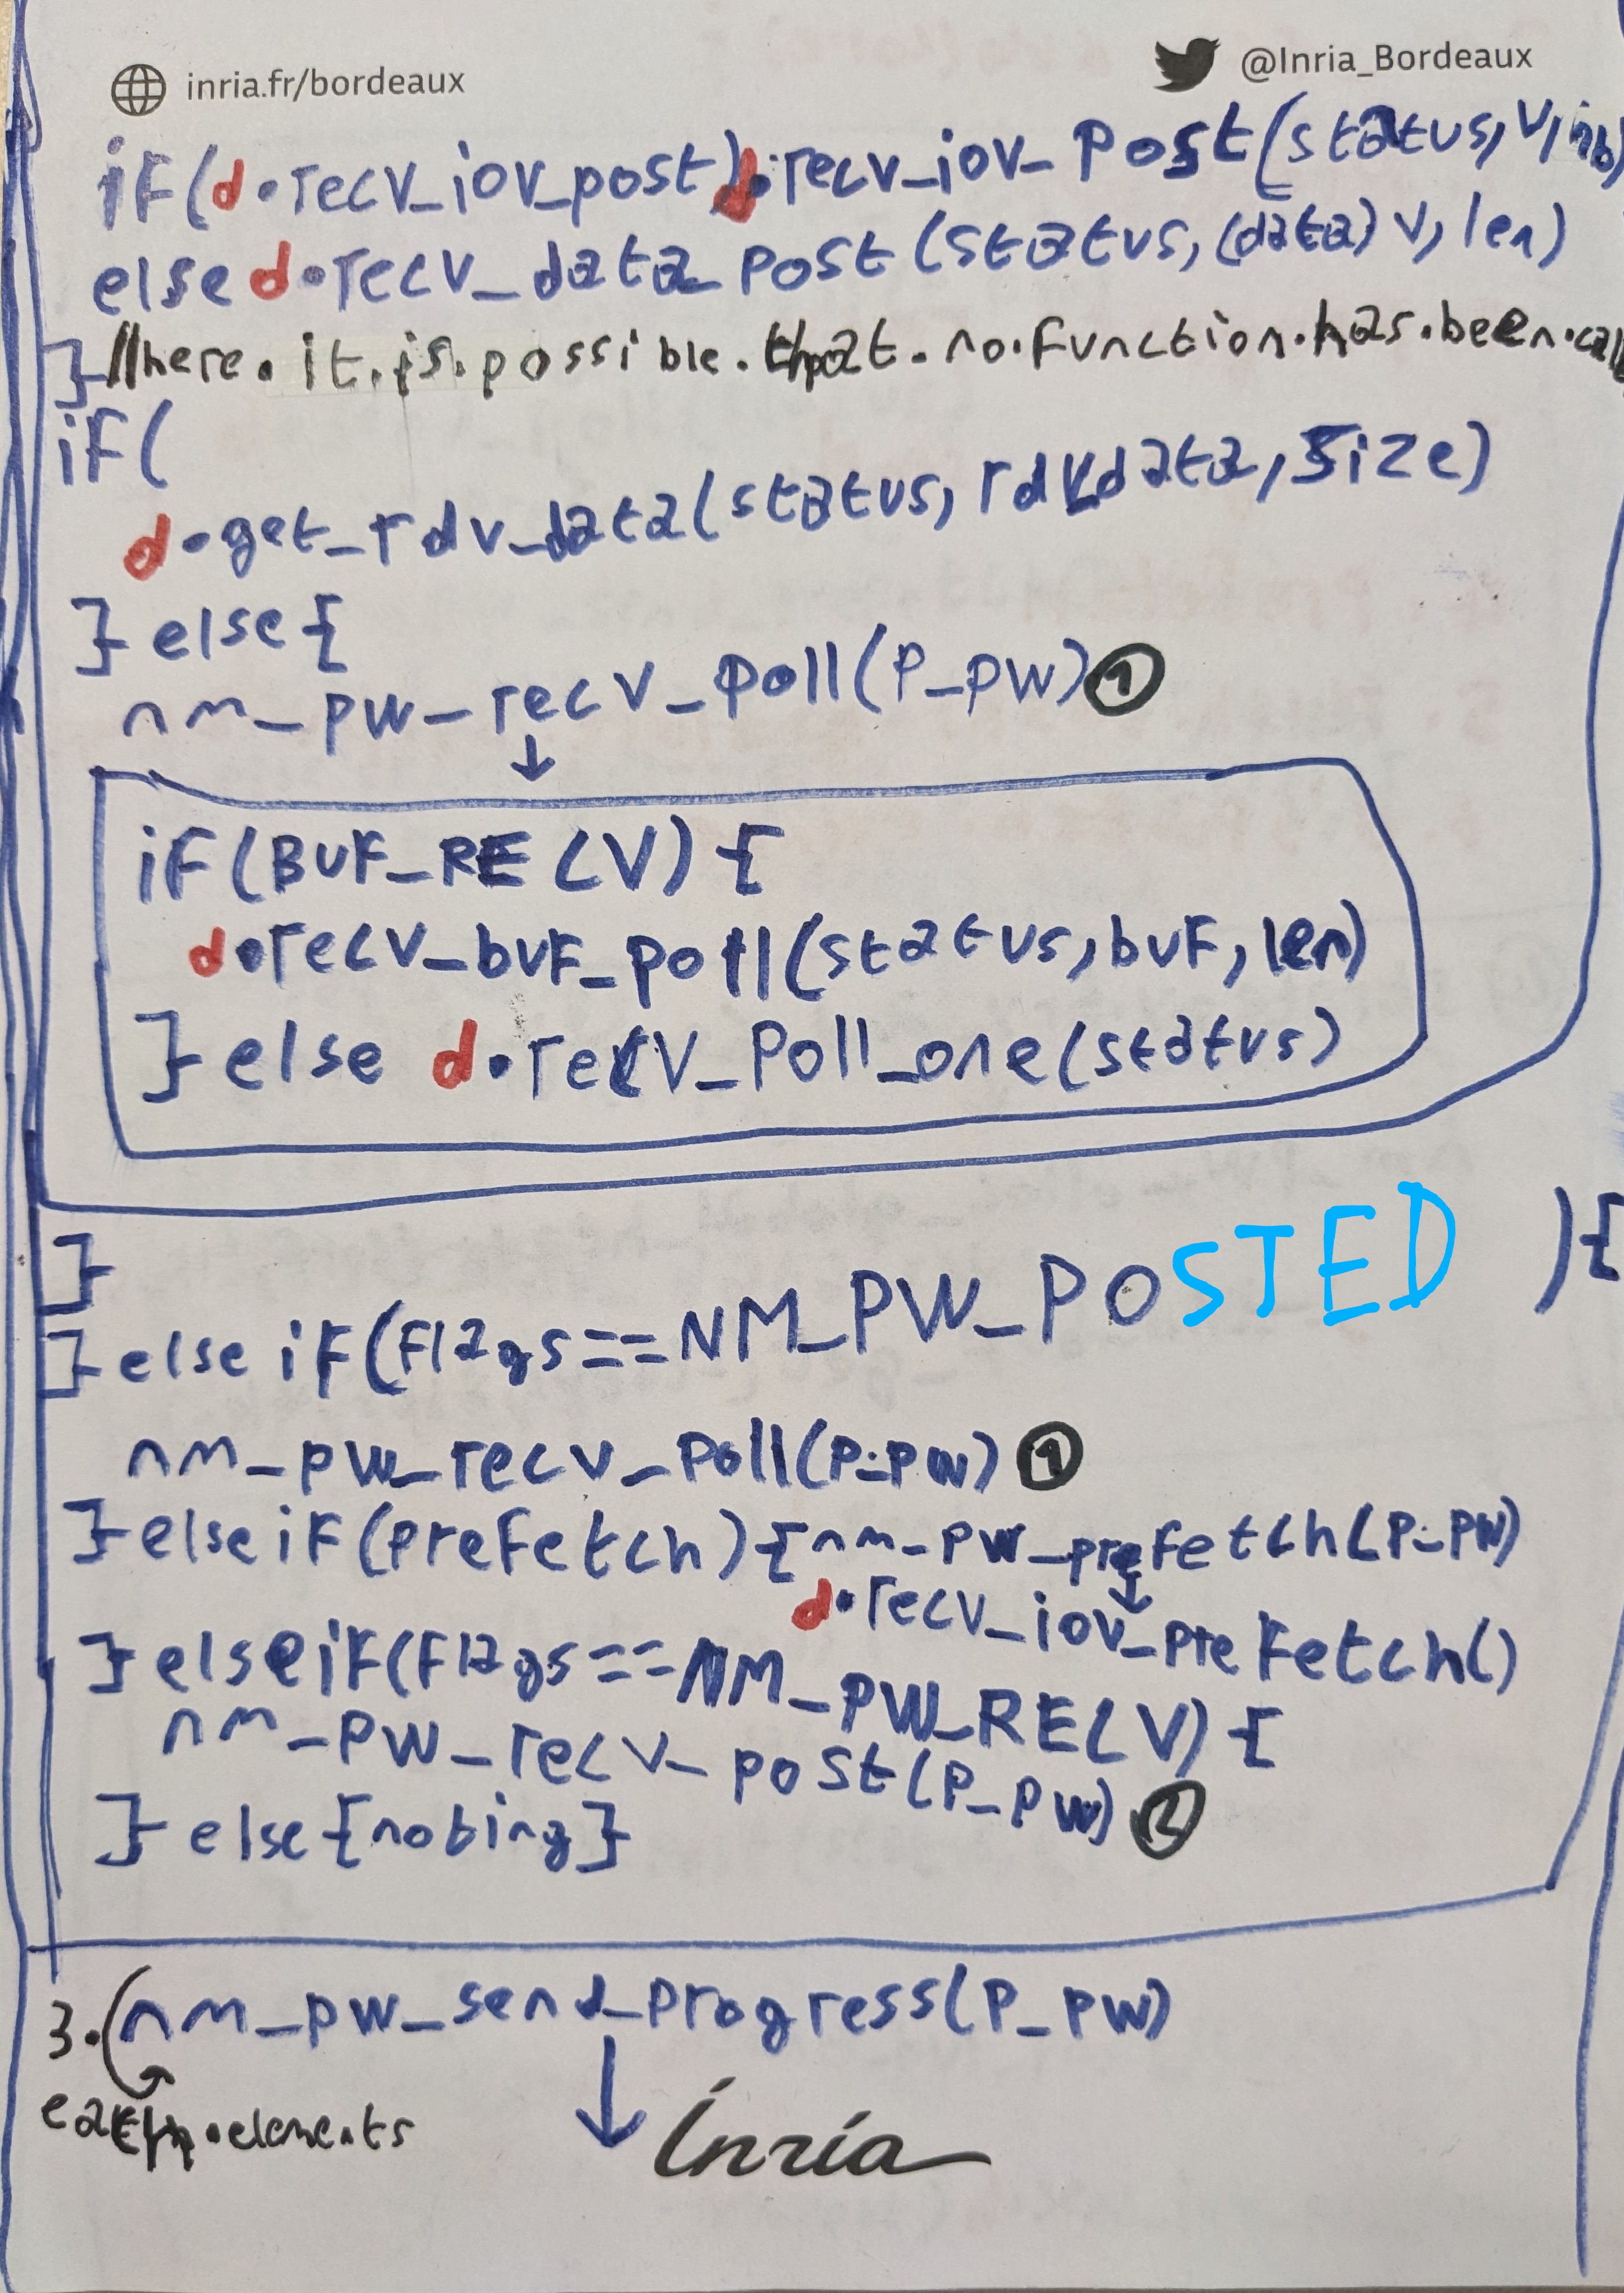 inria.fr/bordeaux
@Inria_Bordeaux
if(d.recv_iov_post)d.recv_iov_post(status,v,nb)
else d.recv_data_post(status,(data)v,len)
}//here.it.is.possible.that.no.function.has.been.call
if(
d.get_rdv_data(status,rdvdata,size)
}else{
nm_pw_recv_poll(P_PW)①
↓
if(BUF_RECV){
d.recv_buf_poll(status,buf,len)
}else d.recv_Poll_one(status)
}
}else if(flags==NM_PW_POSTED){
nm_pw_recv_poll(P_PW)①
}else if(prefetch){nm_pw_prefetch(P_PW)
↓
d.recv_iov_prefetch()
}else if(flags==NM_PW_RECV){
nm_pw_recv_post(P_PW)②
}else{nobing}
3.nm_pw_send_progress(P_PW)
each.elements
↓
Inria